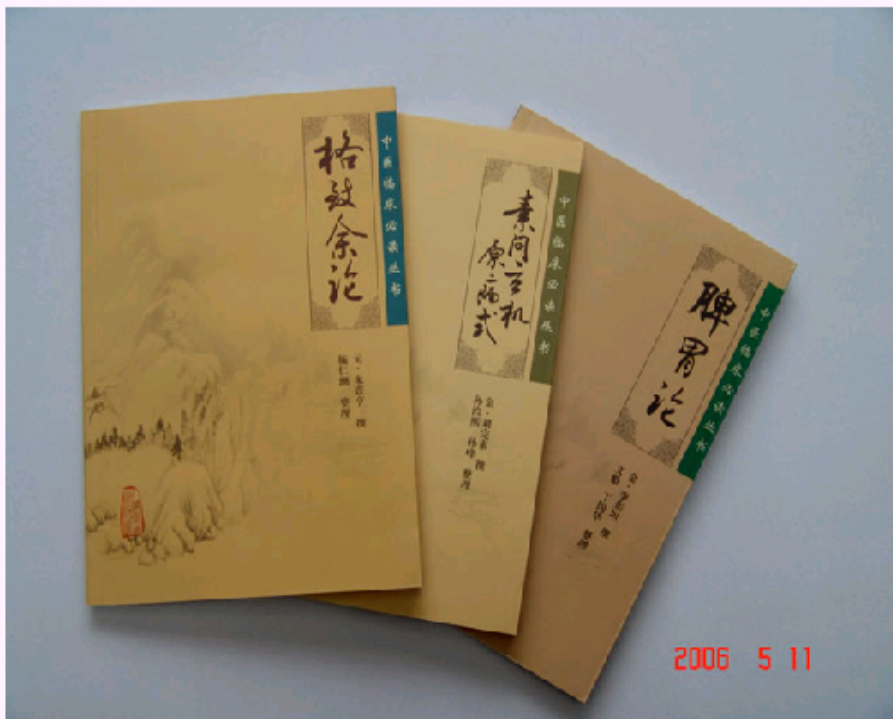 格致余论
中医临床必读丛书
元·朱震亨 撰
施仁潮 整理
素问玄机
原病式
中医临床必读丛书
金·刘完素 撰
孙洽熙 孙峰 整理
脾胃论
中医临床必读丛书
金·李东垣 撰
2006 5 11